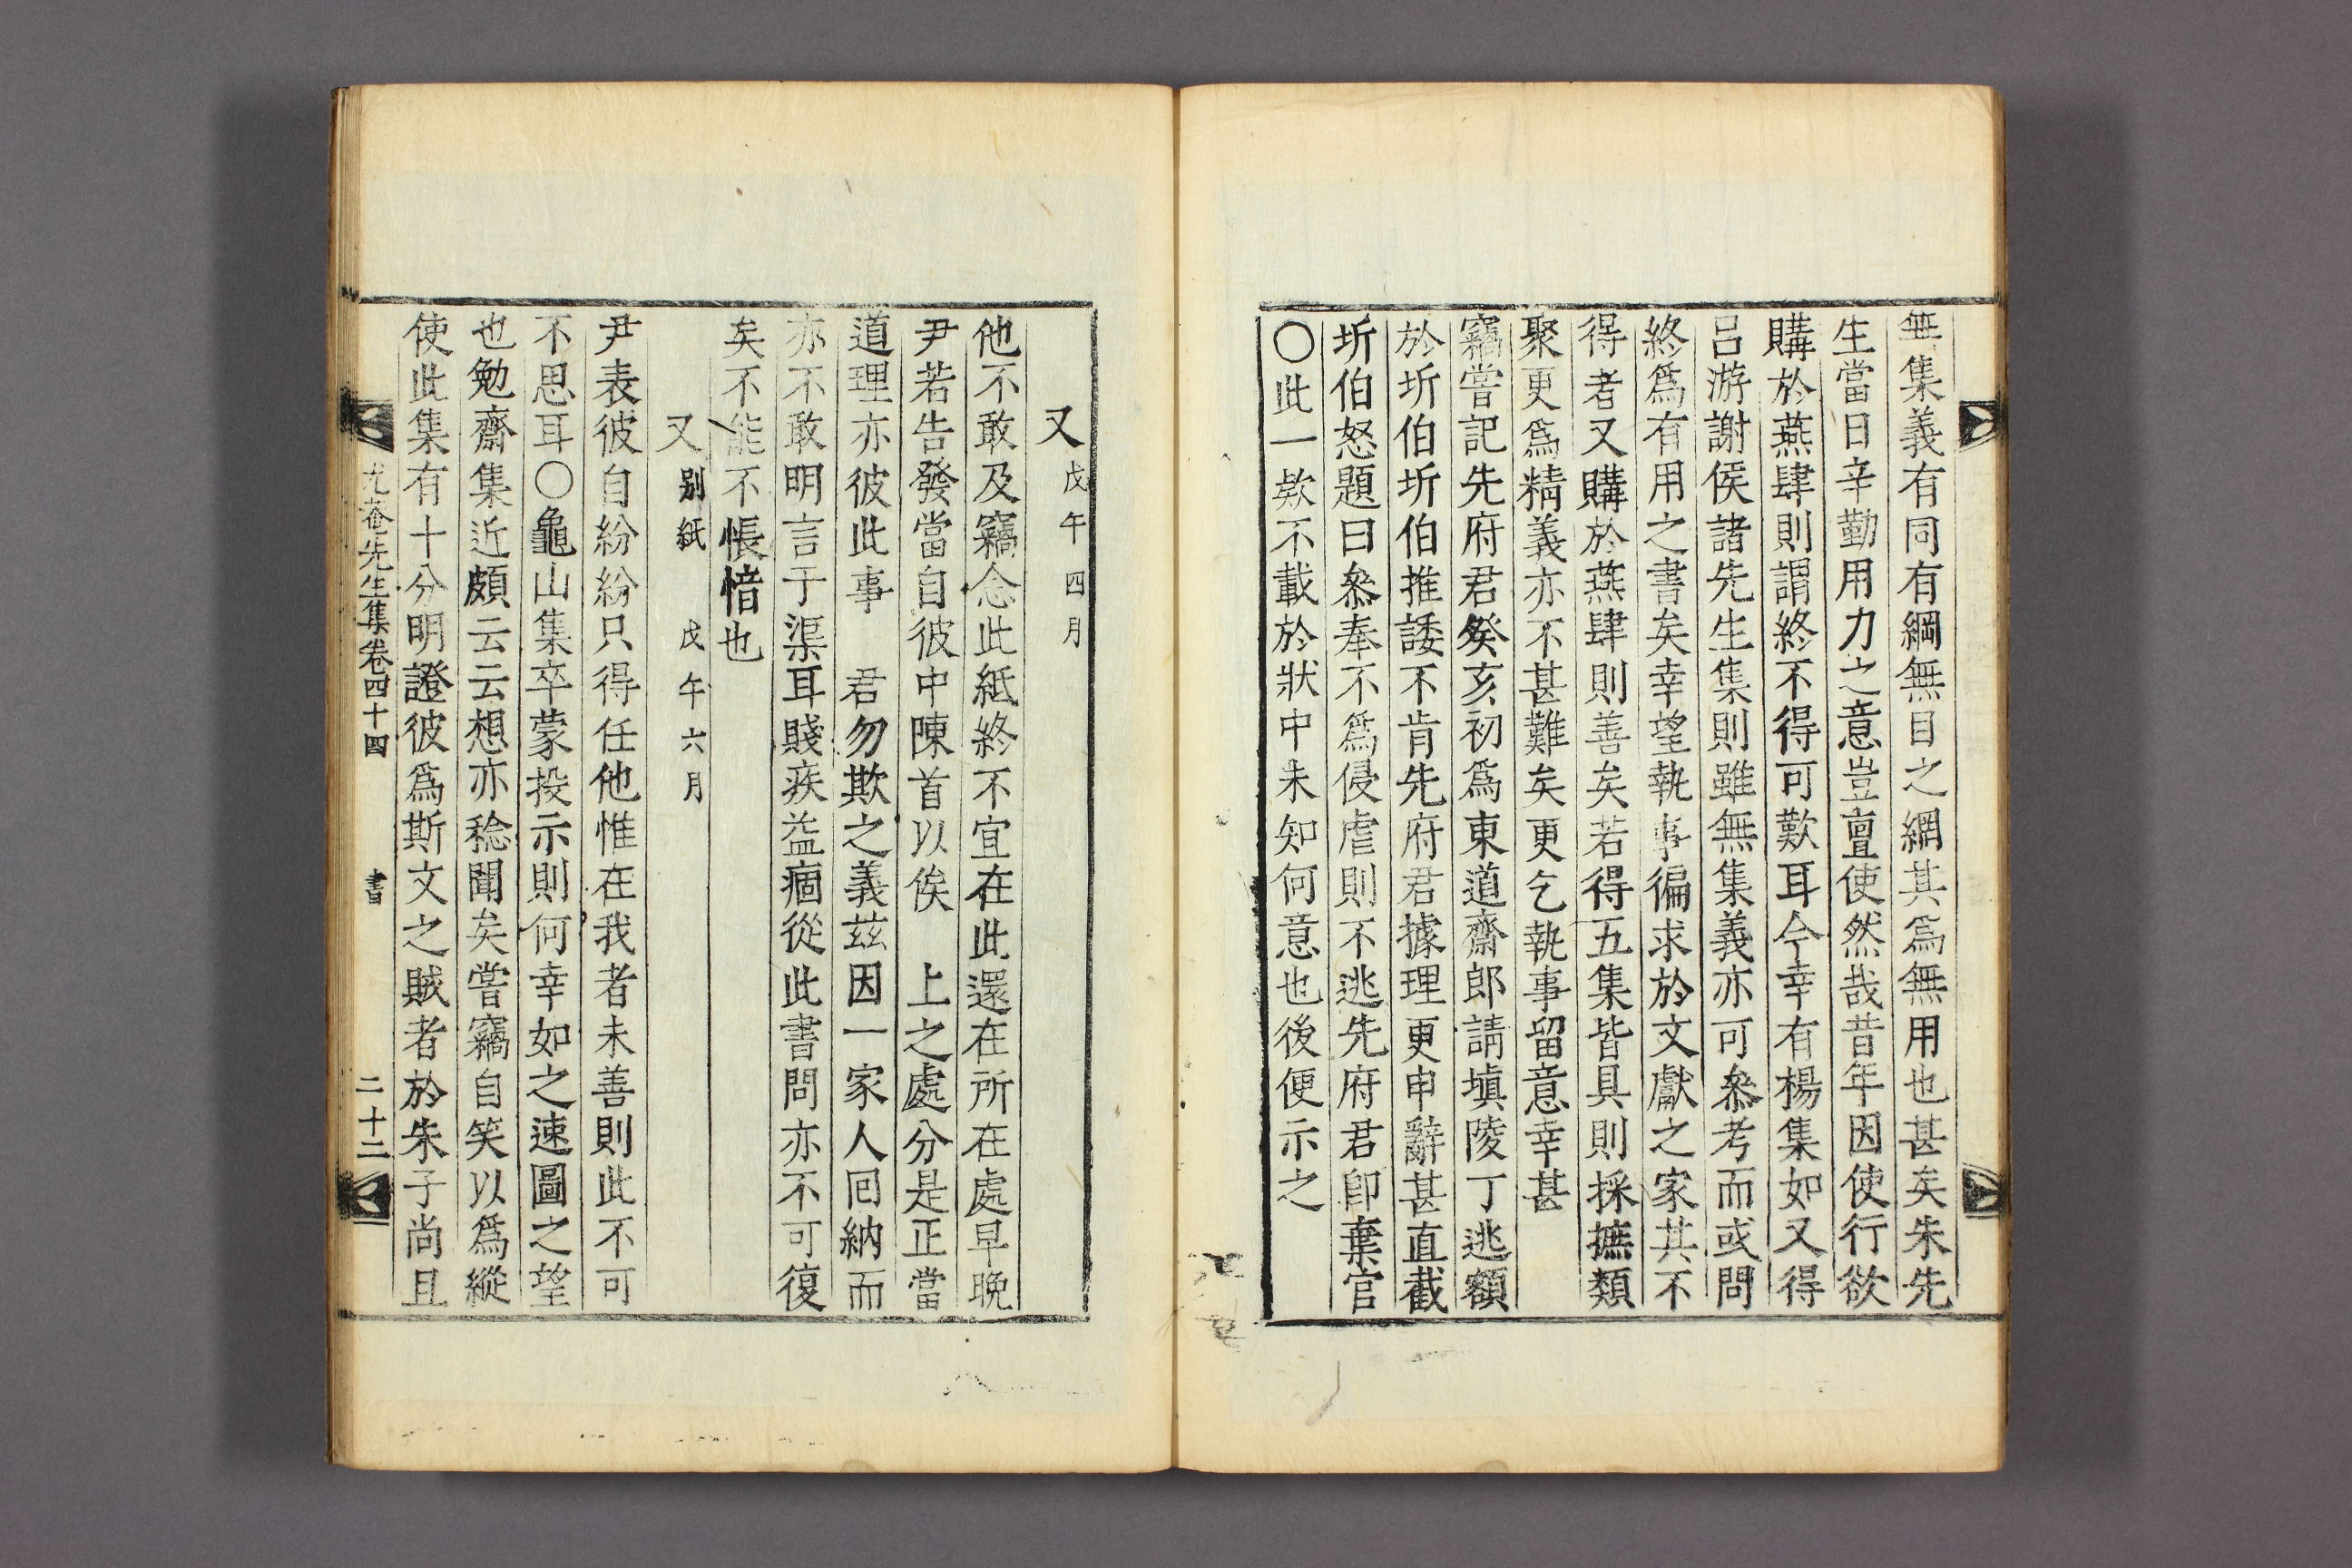 無集義有同有綱無目之網其爲無用也甚矣朱先
生當日辛勤用力之意豈亶使然哉昔年因使行欲
購於燕肆則謂終不得可歎耳今幸有楊集如又得
呂游謝侯諸先生集則雖無集義亦可叅考而或問
終爲有用之書矣幸望執事徧求於文獻之家其不
得者又購於燕肆則善矣若得五集皆具則採摭類
聚更爲精義亦不甚難矣更乞執事留意幸甚
竊嘗記先府君癸亥初爲東道齋郎請塡陵丁逃額
於圻伯圻伯推諉不肯先府君據理更申辭甚直截
圻伯怒題曰叅奉不爲侵虐則不逃先府君卽棄官
○此一欵不載於狀中未知何意也後便示之
又 戊午四月
他不敢及竊念此紙終不宜在此還在所在處早晩
尹若告發當自彼中陳首以俟 上之處分是正當
道理亦彼此事 君勿欺之義玆因一家人回納而
亦不敢明言于渠耳賤疾益痼從此書問亦不可復
矣不能不悵愔也
又 別紙 戊午六月
尹表彼自紛紛只得任他惟在我者未善則此不可
不思耳○龜山集卒蒙投示則何幸如之速圖之望
也勉齋集近頗云云想亦稔聞矣嘗竊自笑以爲縱
使此集有十分明證彼爲斯文之賊者於朱子尚且
尤菴先生集卷四十四 書 二十二